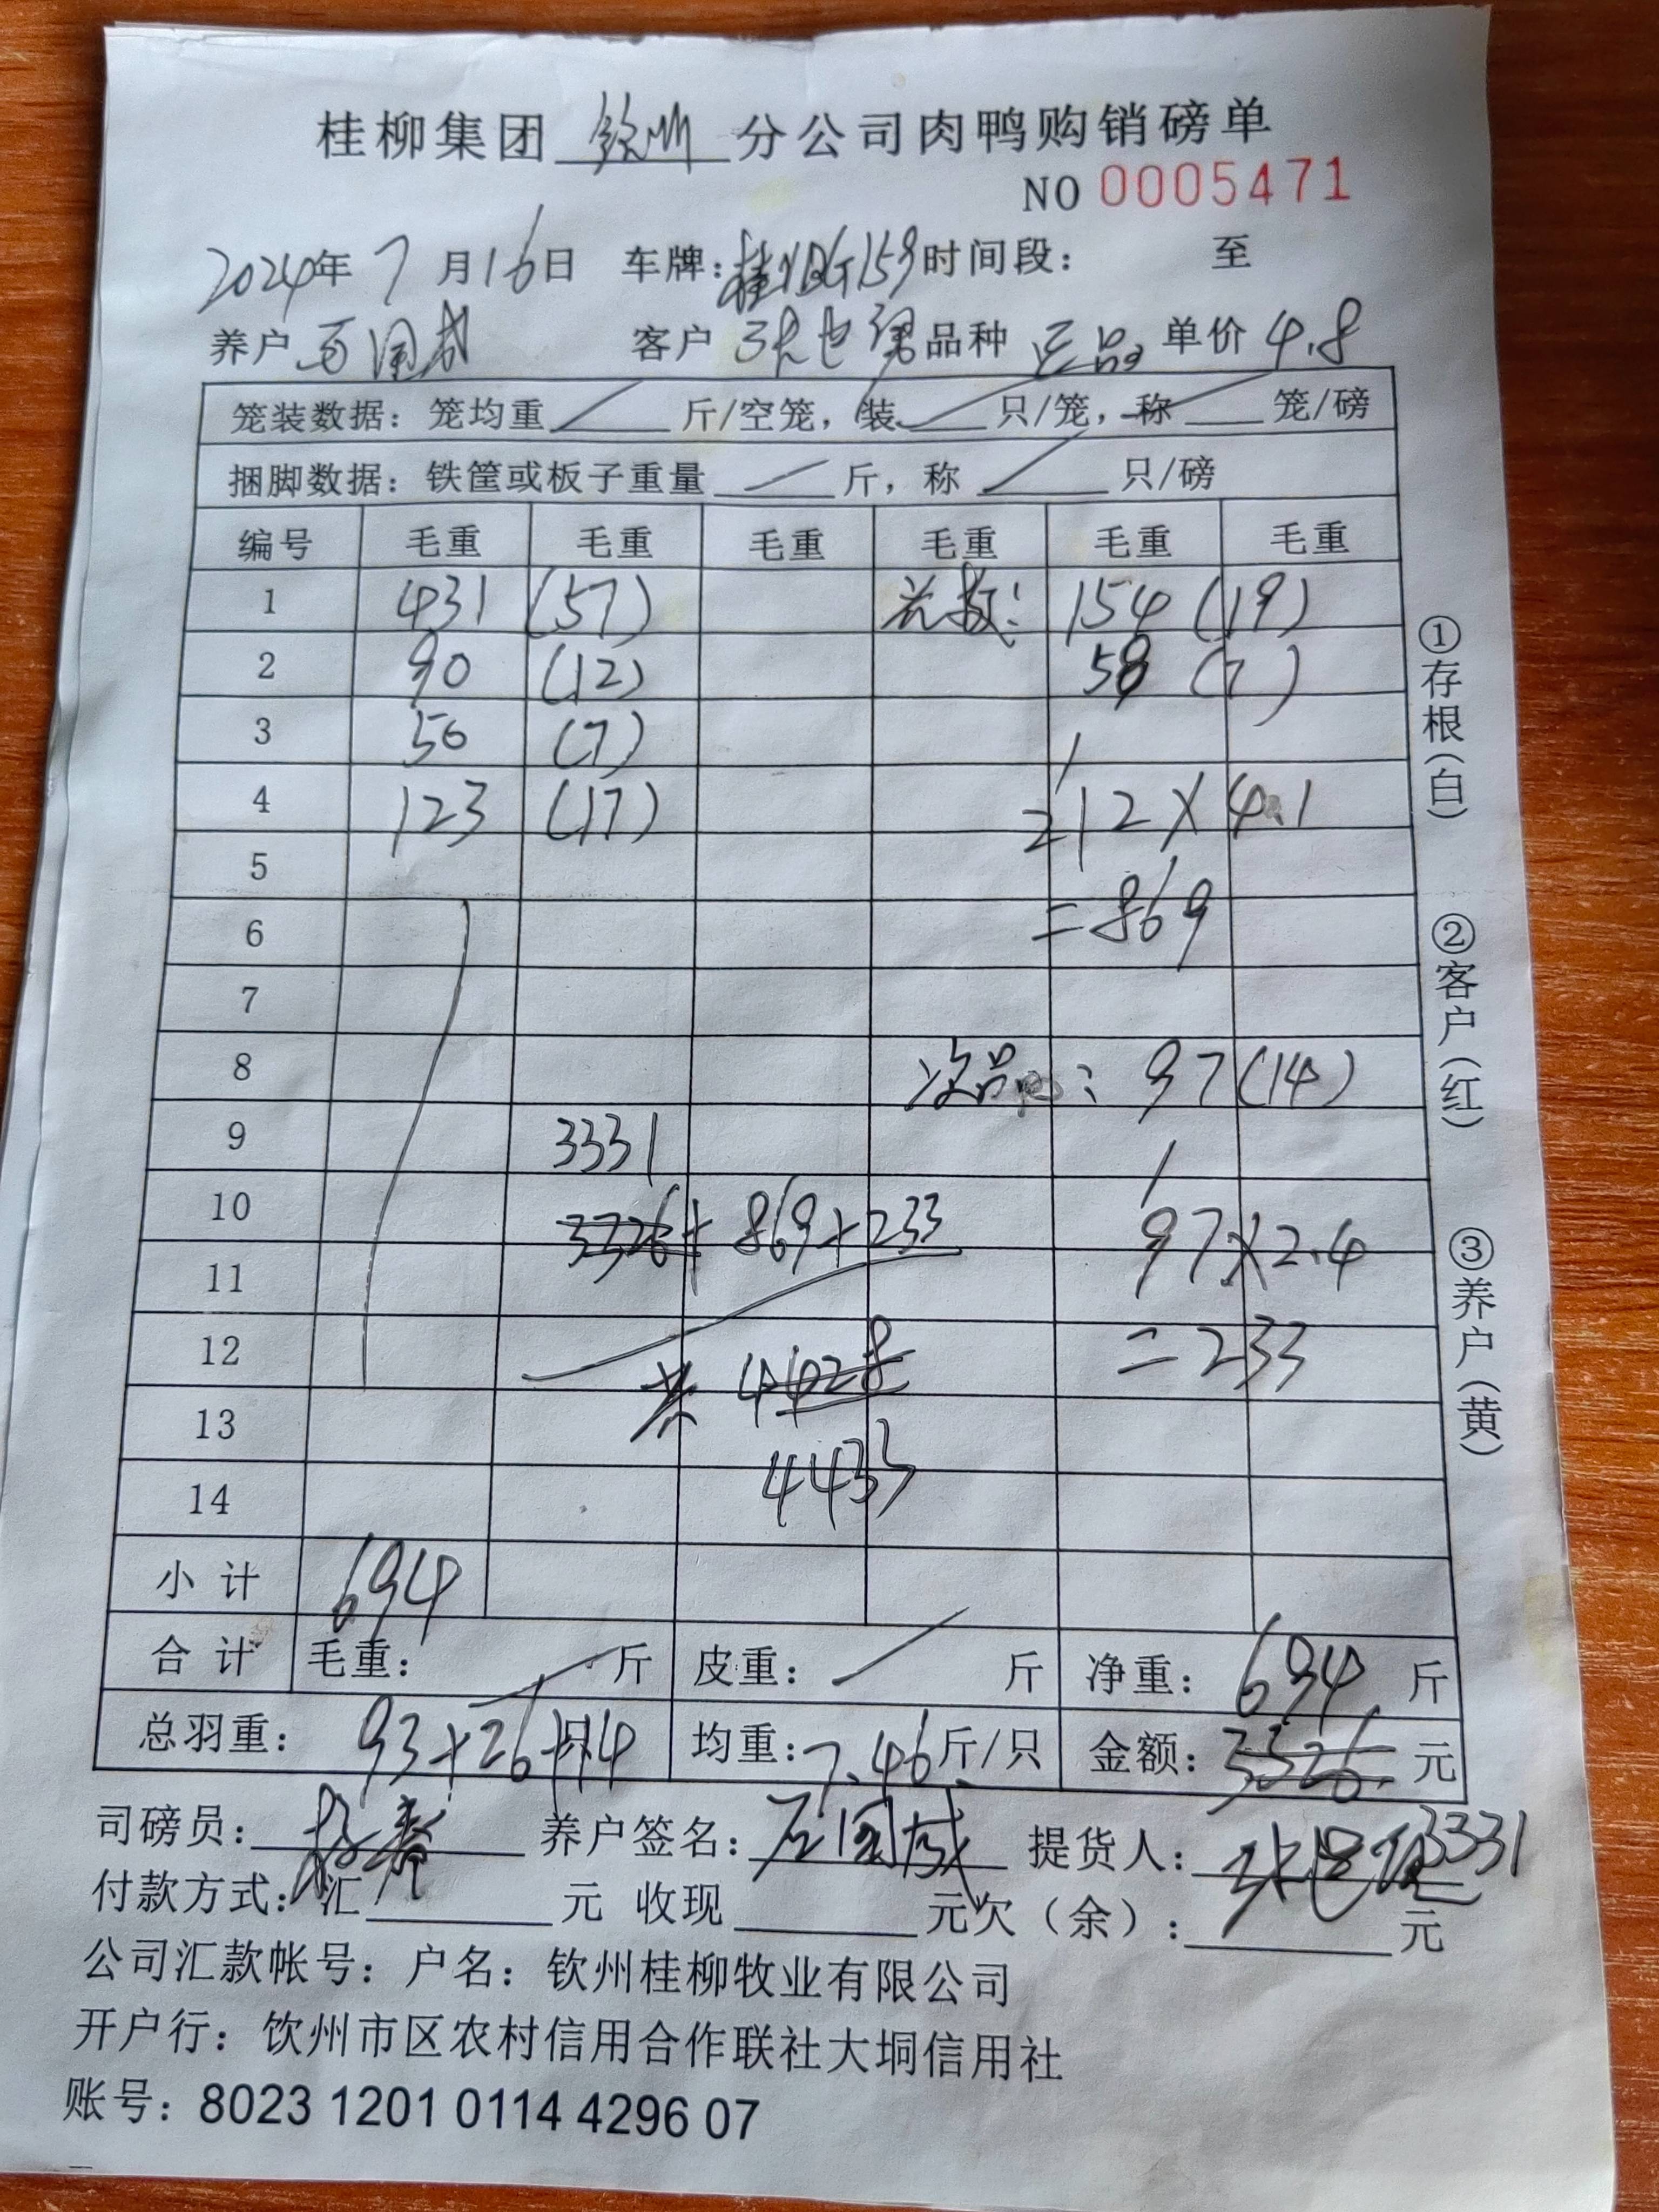 桂柳集团 钦州 分公司肉鸭购销磅单
NO 0005471
2024年 7 月 16 日 车牌: 时间段: 至
养户 客户 张 品种 正品 单价 4.8
笼装数据: 笼均重 斤/空笼, 装 只/笼, 称 笼/磅
捆脚数据: 铁筐或板子重量 斤, 称 只/磅
编号 毛重 毛重 毛重 毛重 毛重 毛重
1 431 (57) 154 (19)
2 90 (12) 58 (7)
3 50 (7)
4 123 (17) 212×4.1
5
6 =869
7
8 次品 : 97 (14)
9 3331
10 3326 + 869 + 233 97×2.4
11
12 共 4428 =233
13
14 4433
小 计 694
合 计 毛重: 斤 皮重: 斤 净重: 694 斤
总羽重: 93+26+14 只 均重: 7.46 斤/只 金额: 3326 元
3331
司磅员: 养户签名: 国成 提货人: 张
付款方式: 汇 元 收现 元欠(余): 元
公司汇款帐号: 户名: 钦州桂柳牧业有限公司
开户行: 饮州市区农村信用合作联社大垌信用社
账号: 8023 1201 0114 4296 07
①存根(白)
②客户(红)
③养户(黄)